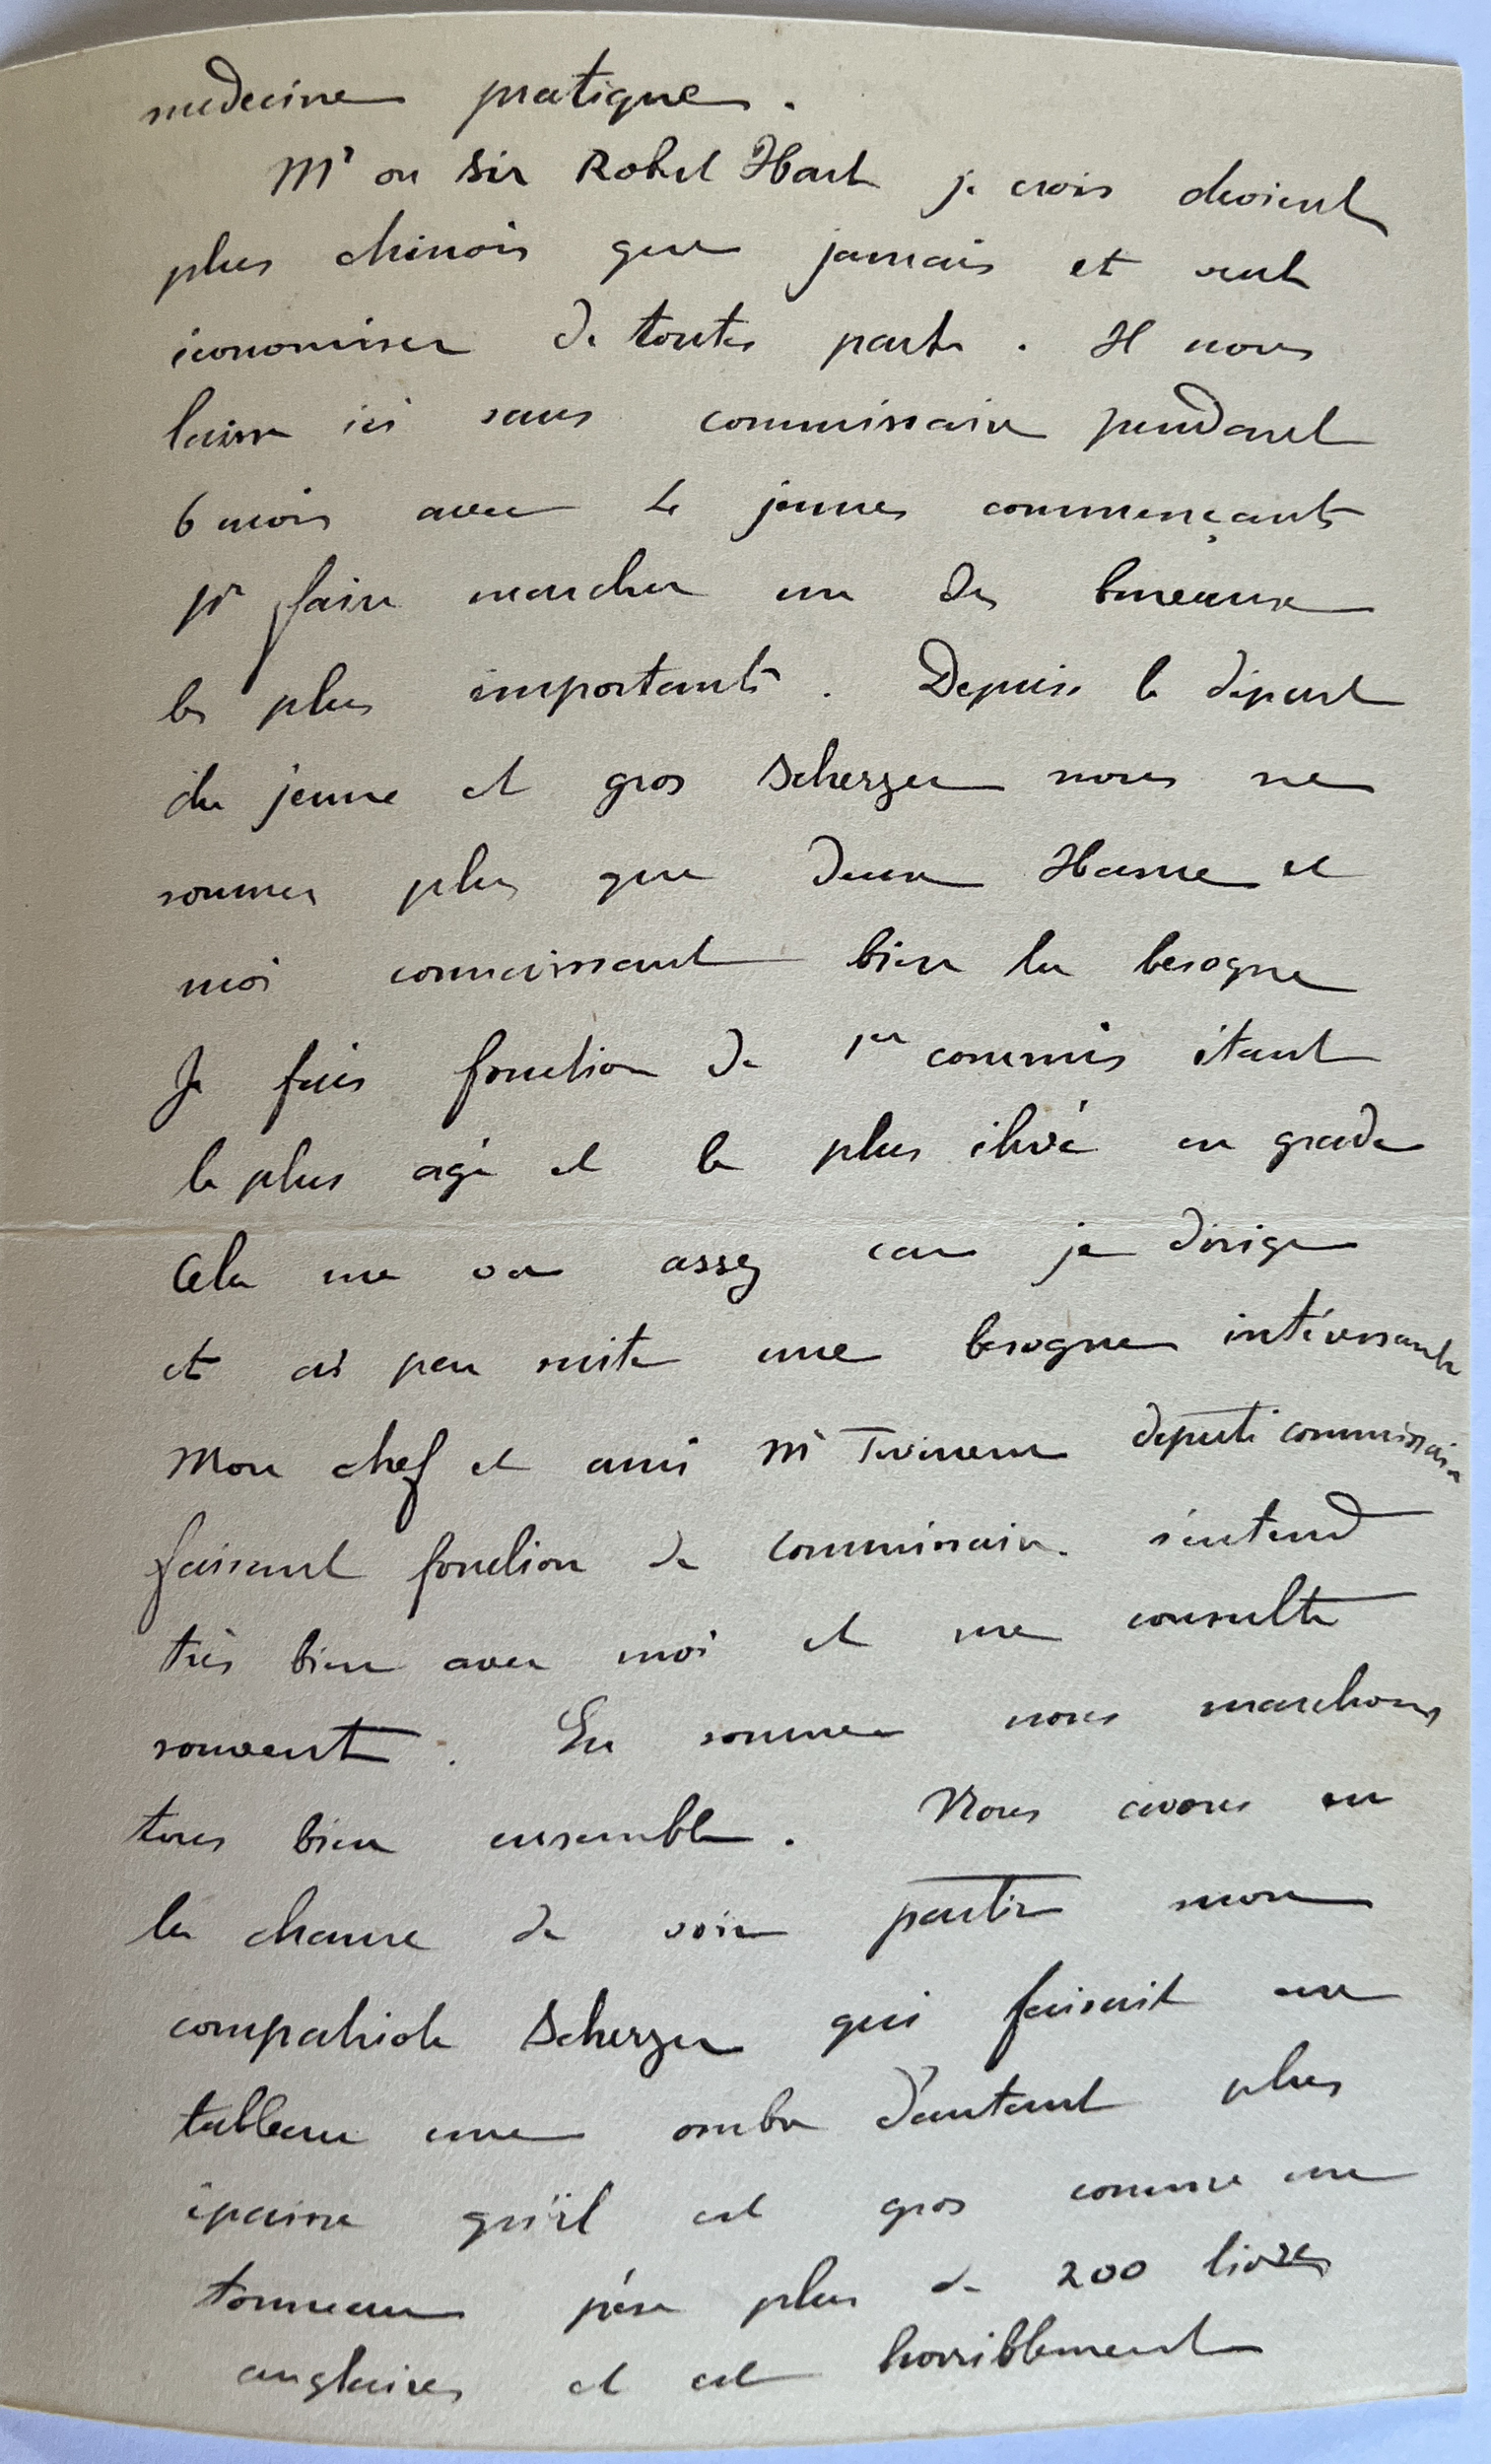 medecine pratique.
Mr ou Sir Robert Hart je crois devient
plus chinois que jamais et veut
économiser de toutes parts. Il nous
laisse ici sans commissaire pendant
6 mois avec 4 jeunes commençants
pr faire marcher un des bureaux
les plus importants. Depuis le départ
du jeune et gros Scherzer nous ne
sommes plus que deux Hanne et
moi connaissant bien la besogne
Je fais fonction de 1er commis étant
le plus agé et le plus élevé en grade
Cela me va assez car je dirige
et ai par suite une besogne intéressante
Mon chef et ami Mr Twinem deputé commissaire
faisant fonction de commissaire s'entend
très bien avec moi et me consulte
souvent. En somme nous marchons
tous bien ensemble. Nous avons eu
la chance de voir partir mon
compatriote Scherzer qui faisait au
tableau une ombre d'autant plus
épaisse qu'il est gros comme un
tonneau pèse plus de 200 livres
anglaises et est horriblement